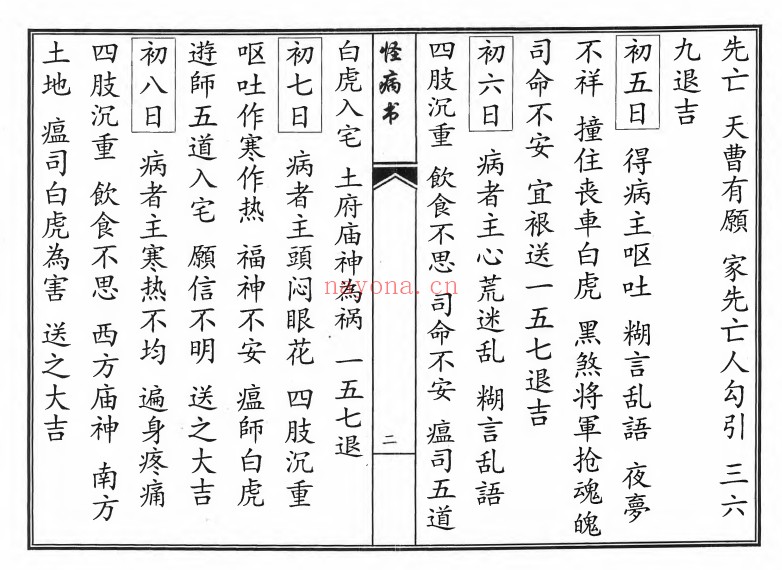 先亡　天曹有願　家先亡人勾引　三六
九退吉
初五日　得病主呕吐　糊言乱語　夜夢
不祥　撞住丧車白虎　黑煞将軍抢魂魄
司命不安　宜裉送一五七退吉
初六日　病者主心荒迷乱　糊言乱語
四肢沉重　飲食不思　司命不安　瘟司五道
怪病书
二
白虎入宅　土府庙神為祸　一五七退
初七日　病者主頭闷眼花　四肢沉重
呕吐作寒作热　福神不安　瘟師白虎
遊師五道入宅　願信不明　送之大吉
初八日　病者主寒热不均　遍身疼痛
四肢沉重　飲食不思　西方庙神　南方
土地　瘟司白虎為害　送之大吉
nayona.cn